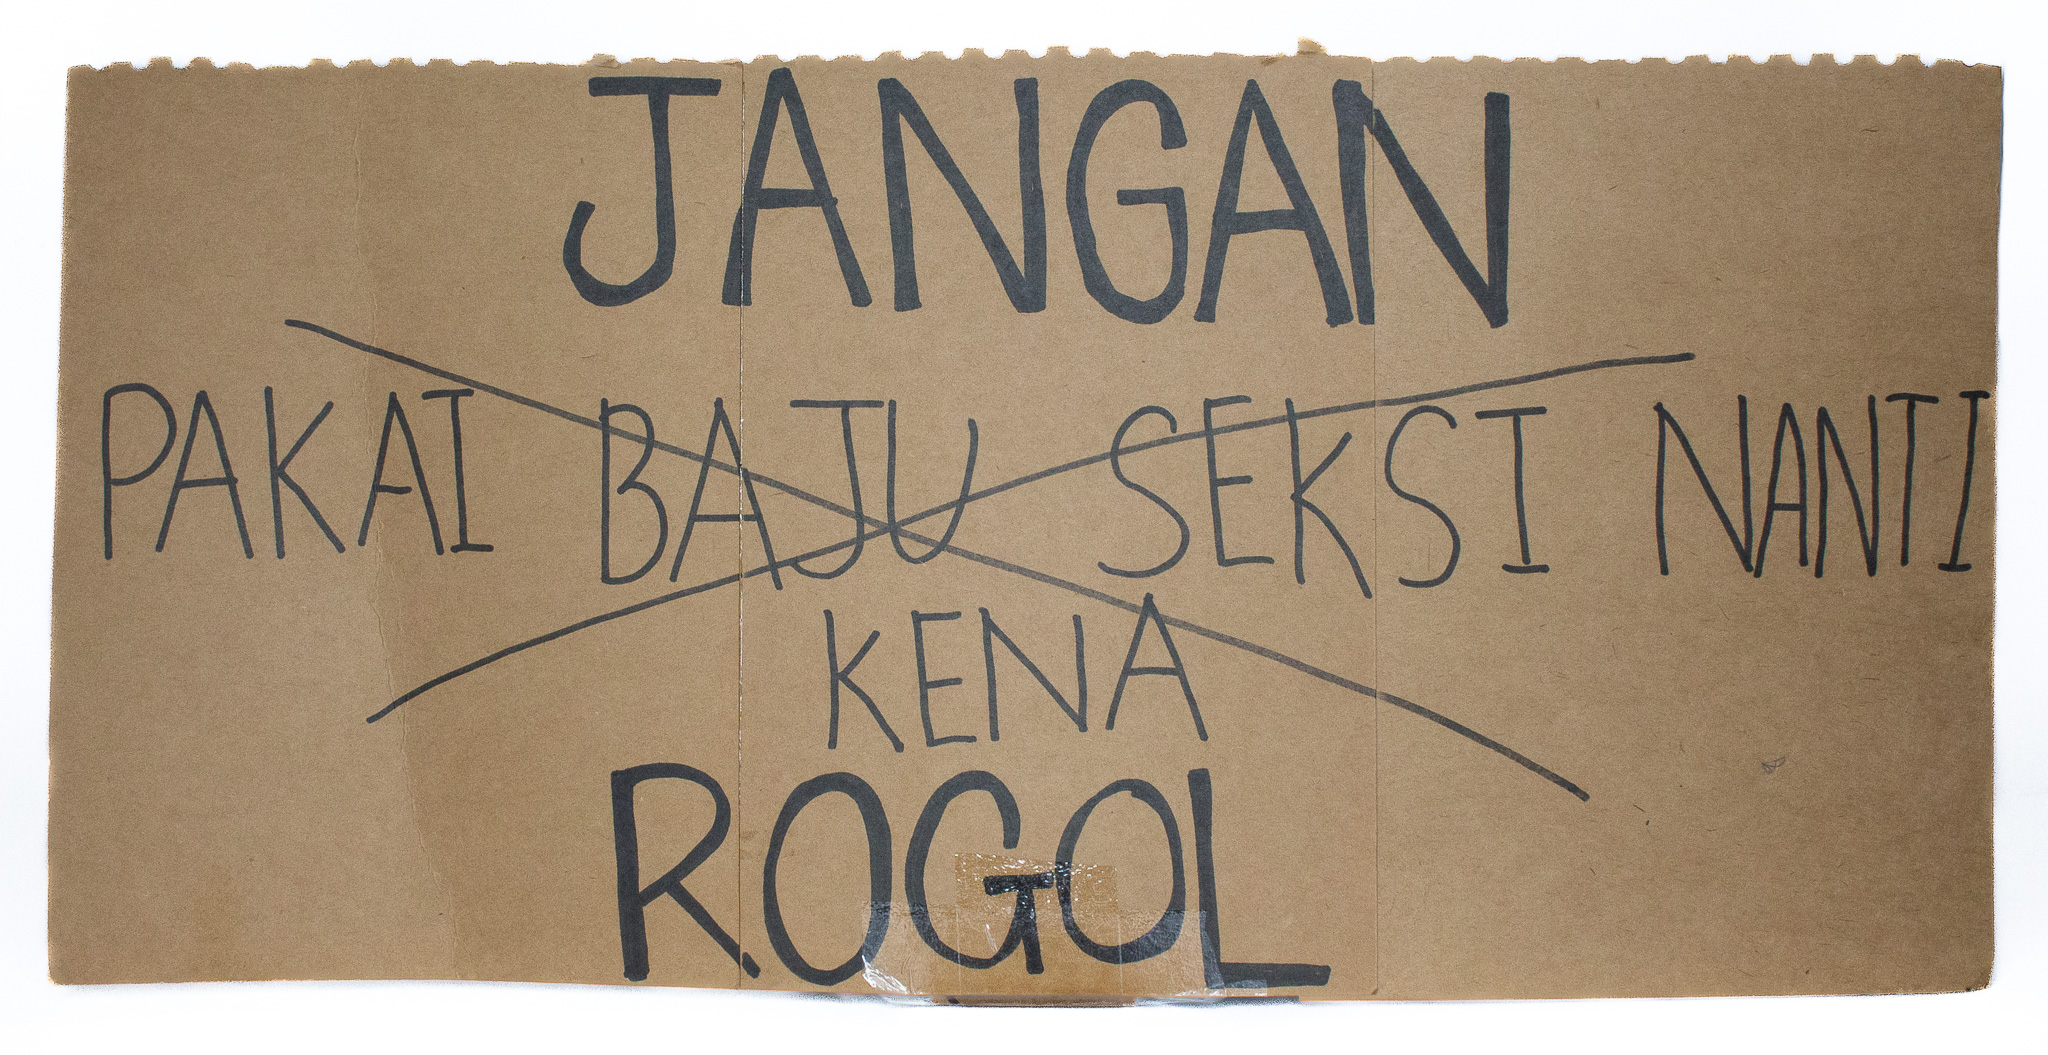 JANGAN
PAKAI BAJU SEKSI NANTI
KENA
ROGOL